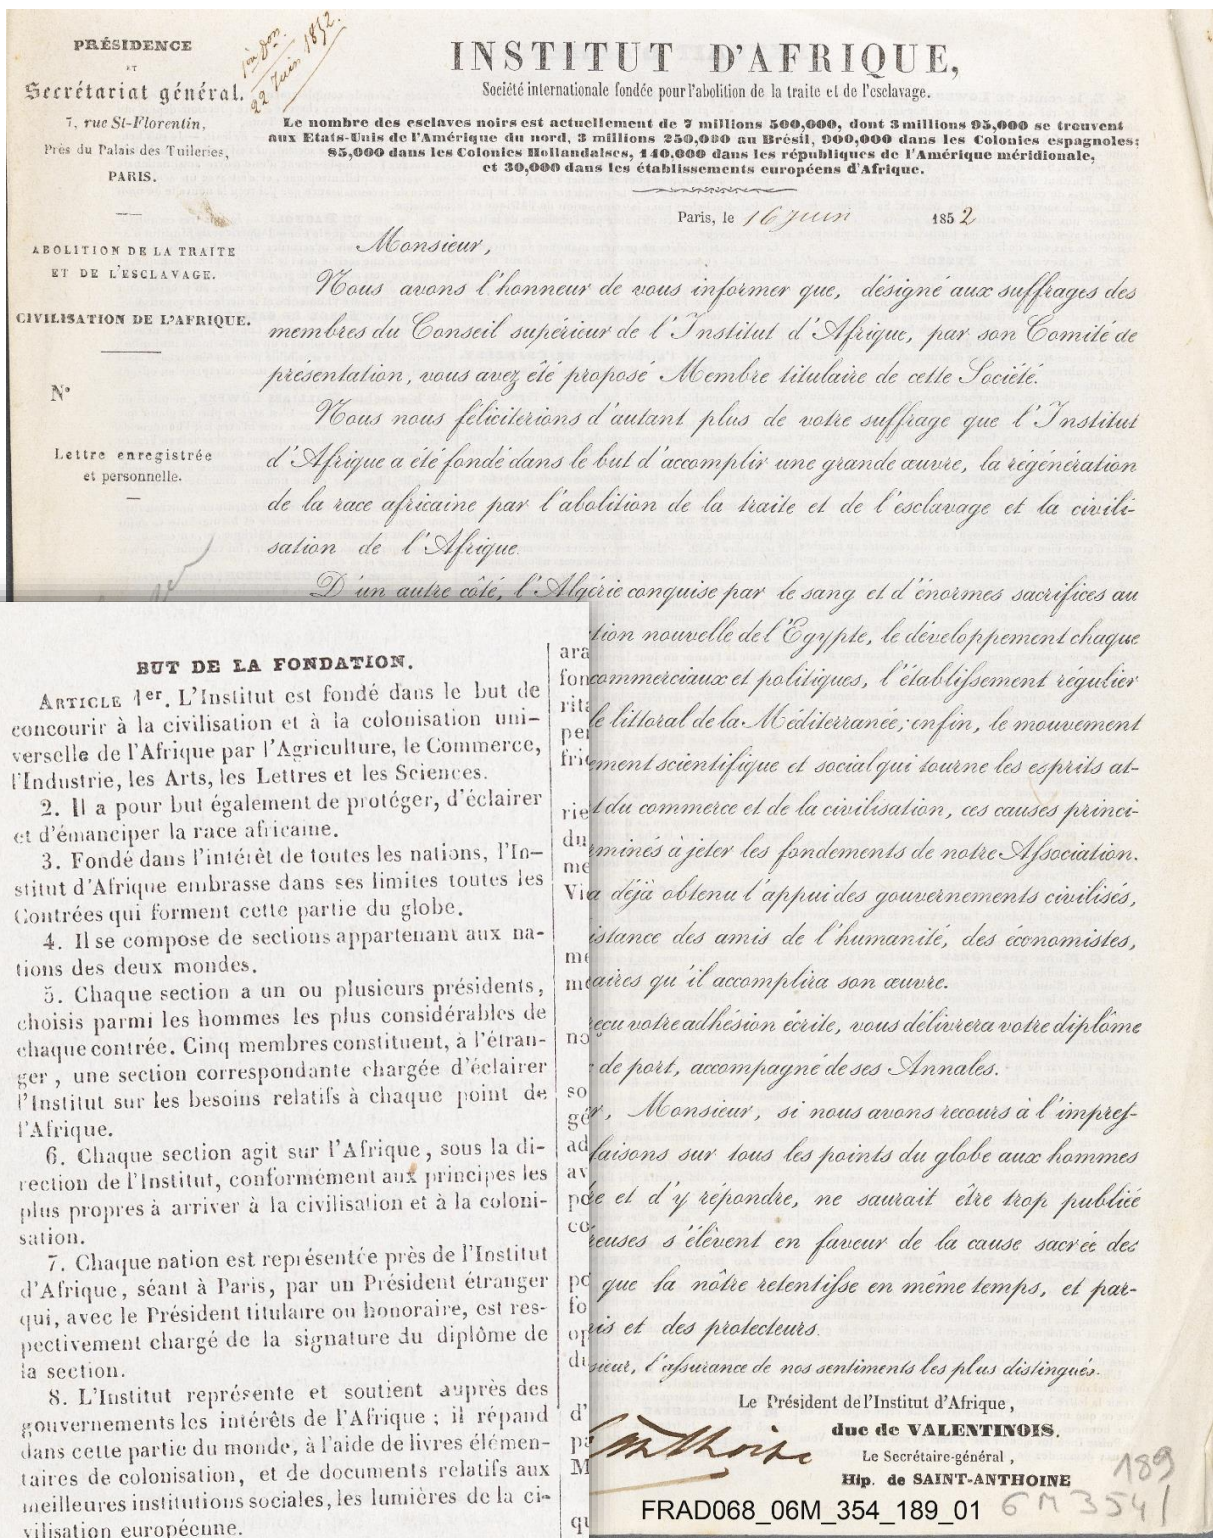 PRÉSIDENCE
ET
Secrétariat général.
7, rue St-Florentin,
Près du Palais des Tuileries,
PARIS.
ABOLITION DE LA TRAITE
ET DE L'ESCLAVAGE.
CIVILISATION DE L'AFRIQUE.
N°
Lettre enregistrée
et personnelle.
22 Juin 1852.
INSTITUT D'AFRIQUE,
Société internationale fondée pour l'abolition de la traite et de l'esclavage.
Le nombre des esclaves noirs est actuellement de 7 millions 500,000, dont 3 millions 95,000 se trouvent
aux Etats-Unis de l'Amérique du nord, 3 millions 250,000 au Brésil, 900,000 dans les Colonies espagnoles;
85,000 dans les Colonies Hollandaises, 140,000 dans les républiques de l'Amérique méridionale,
et 30,000 dans les établissements européens d'Afrique.
Paris, le 16 juin 1852
Monsieur,
Nous avons l'honneur de vous informer que, désigné aux suffrages des
membres du Conseil supérieur de l'Institut d'Afrique, par son Comité de
présentation, vous avez été proposé Membre titulaire de cette Société.
Nous nous féliciterions d'autant plus de votre suffrage que l'Institut
d'Afrique a été fondé dans le but d'accomplir une grande œuvre, la régénération
de la race africaine par l'abolition de la traite et de l'esclavage et la civili-
sation de l'Afrique.
D'un autre côté, l'Algérie conquise par le sang et d'énormes sacrifices au
tion nouvelle de l'Egypte, le développement chaque
commerciaux et politiques, l'établissement régulier
le littoral de la Méditerranée; enfin, le mouvement
ement scientifique et social qui tourne les esprits at-
t du commerce et de la civilisation, ces causes princi-
rminés à jeter les fondements de notre Association.
a déjà obtenu l'appui des gouvernements civilisés,
istance des amis de l'humanité, des économistes,
aires qu'il accomplira son œuvre.
eçu votre adhésion écrite, vous délivrera votre diplôme
de port, accompagné de ses Annales.
r, Monsieur, si nous avons recours à l'impres-
faisons sur tous les points du globe aux hommes
re et d'y répondre, ne saurait être trop publiée
reuses s'élèvent en faveur de la cause sacrée des
que la nôtre retentisse en même temps, et par-
is et des protecteurs.
sieur, l'assurance de nos sentiments les plus distingués.
Le Président de l'Institut d'Afrique,
duc de VALENTINOIS.
Le Secrétaire-général,
Hip. de SAINT-ANTHOINE
189
6 M 354 /
FRAD068_06M_354_189_01
BUT DE LA FONDATION.
ARTICLE 1er. L'Institut est fondé dans le but de
concourir à la civilisation et à la colonisation uni-
verselle de l'Afrique par l'Agriculture, le Commerce,
l'Industrie, les Arts, les Lettres et les Sciences.
2. Il a pour but également de protéger, d'éclairer
et d'émanciper la race africaine.
3. Fondé dans l'intérêt de toutes les nations, l'In-
stitut d'Afrique embrasse dans ses limites toutes les
Contrées qui forment cette partie du globe.
4. Il se compose de sections appartenant aux na-
tions des deux mondes.
5. Chaque section a un ou plusieurs présidents,
choisis parmi les hommes les plus considérables de
chaque contrée. Cinq membres constituent, à l'étran-
ger, une section correspondante chargée d'éclairer
l'Institut sur les besoins relatifs à chaque point de
l'Afrique.
6. Chaque section agit sur l'Afrique, sous la di-
rection de l'Institut, conformément aux principes les
plus propres à arriver à la civilisation et à la coloni-
sation.
7. Chaque nation est représentée près de l'Institut
d'Afrique, séant à Paris, par un Président étranger
qui, avec le Président titulaire ou honoraire, est res-
pectivement chargé de la signature du diplôme de
la section.
8. L'Institut représente et soutient auprès des
gouvernements les intérêts de l'Afrique; il répand
dans cette partie du monde, à l'aide de livres élémen-
taires de colonisation, et de documents relatifs aux
meilleures institutions sociales, les lumières de la ci-
vilisation européenne.